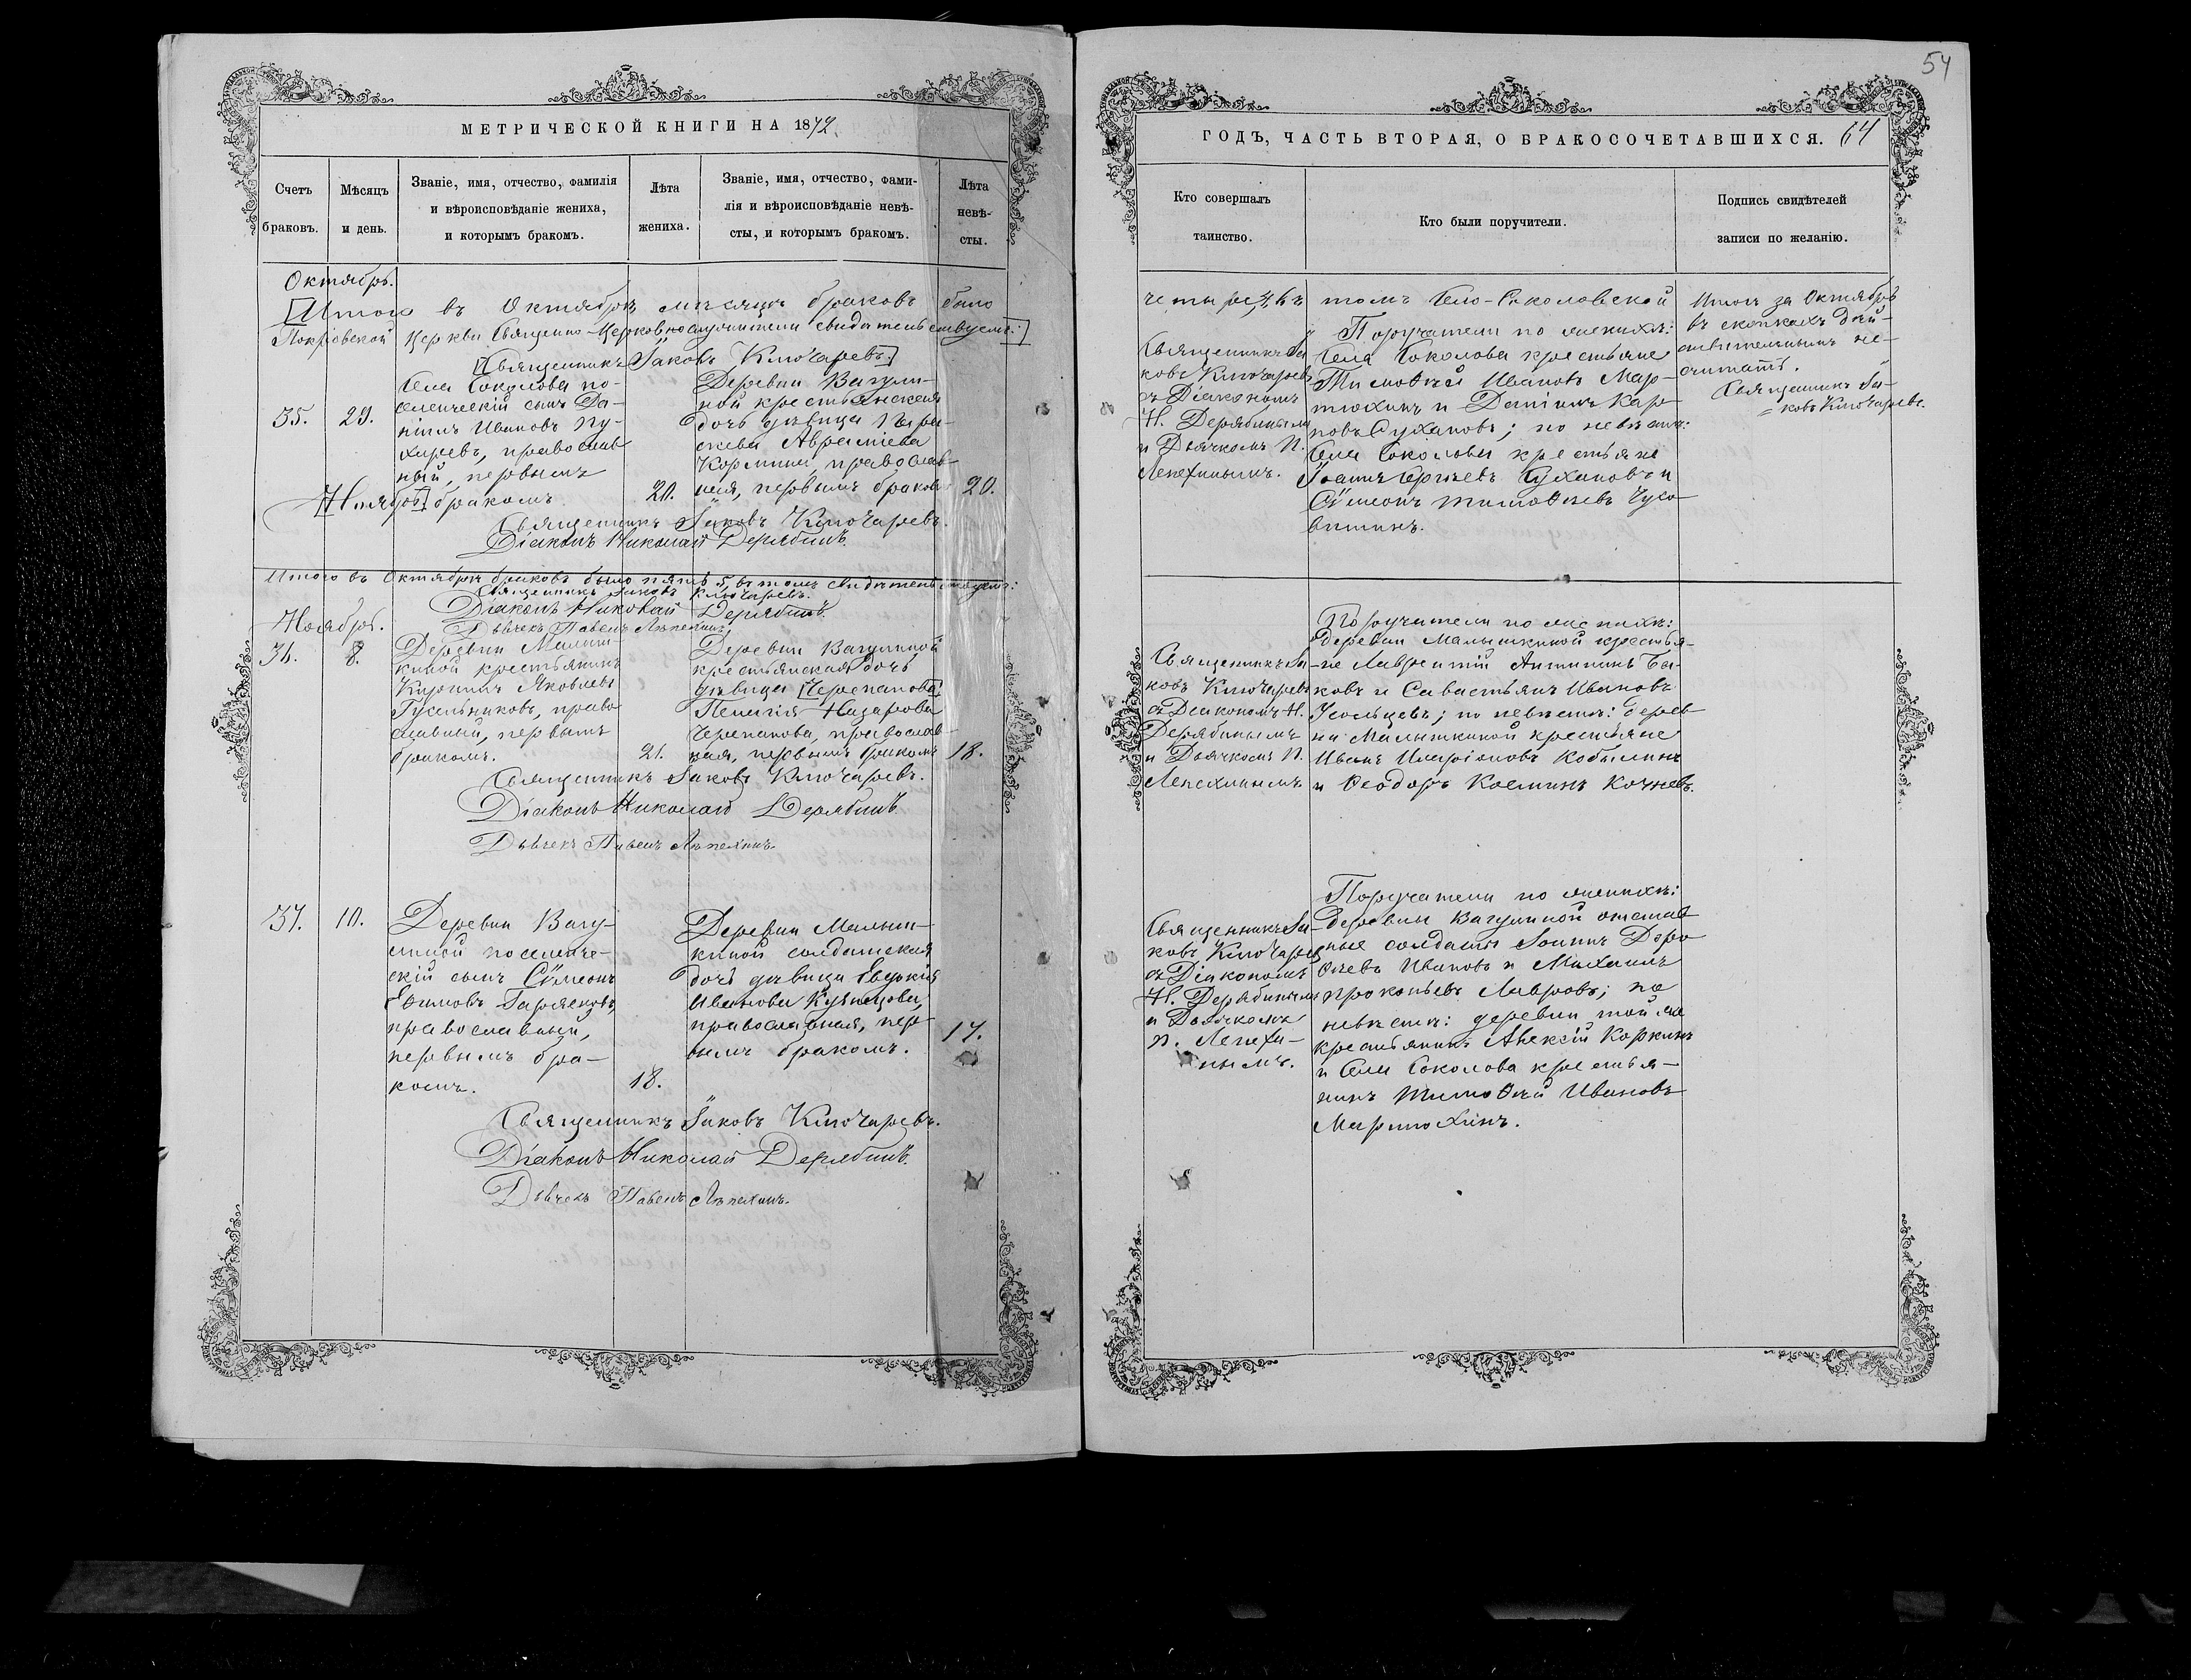 МЕТРИЧЕСКОЙ КНИГИ НА 1872
Счетъ браковъ.
Мѣсяцъ и день.
Званіе, имя, отчество, фамилія
и вѣроисповѣданіе жениха,
и которымъ бракомъ.
Лѣта жениха.
Званіе, имя, отчество, фами-
лія и вѣроисповѣданіе невѣ-
сты, и которымъ бракомъ.
Лѣта невѣ-
сты.
Октябрь.
[Итого въ Октябрѣ мѣсяцѣ браковъ было
Покровской Церкви Священно-Церковнослужители свидѣтельствуемъ:]
[Священникъ Іаковъ Ключаревъ.]
35.
29.
Села Соколова по-
селенческій сынъ Да-
ніилъ Ивановъ Пу-
хиревъ, православ
ный, первымъ
бракомъ
20.
Деревни Вагули-
ной крестьянская
дочь дѣвица Пара-
скева Авраміева
Коркина, православ
ная, первымъ бракомъ
20.
[Ноябрь.]
Священникъ Іаковъ Ключаревъ.
Діаконъ Николай Дерябинъ.
Итого въ Октябрѣ браковъ было пять 5, въ томъ свидѣтельствуемъ:
Священникъ Іаковъ Ключаревъ.
Діаконъ Николай Дерябинъ.
Дьячекъ Павелъ Лѣпехинъ.
Ноябрь.
36.
8.
Деревни Малыш-
киной крестьянинъ
Кириллъ Яковлевъ
Гусельниковъ, право
славный, первымъ
бракомъ.
21.
Деревни Вагулиной
крестьянская дочь
дѣвица [Черепанова]
Пелагія Назарова
Черепанова, православ
ная, первымъ бракомъ
18.
Священникъ Іаковъ Ключаревъ.
Діаконъ Николай Дерябинъ.
Дьячекъ Павелъ Лѣпехинъ.
37.
10.
Деревни Вагу-
линой поселенче-
скій сынъ Сѵмеонъ
Ефимовъ
православный,
первымъ бра-
комъ.
18.
Деревни Малыш-
киной солдатская
дочь дѣвица Евдокія
Иванова Кузнецова,
православная, пер-
вымъ бракомъ.
17.
Священникъ Іаковъ Ключаревъ.
Діаконъ Николай Дерябинъ.
Дьячекъ Павелъ Лѣпехинъ.
54
ГОДЪ, ЧАСТЬ ВТОРАЯ, О БРАКОСОЧЕТАВШИХСЯ. 64
Кто совершалъ
таинство.
Кто были поручители.
Подпись свидѣтелей
записи по желанію.
четыре, 4, въ томъ Село-Соколовской
Священникъ Іа-
ковъ Ключаревъ
съ Діакономъ
Н. Дерябинымъ
и Дьячкомъ П.
Лепехинымъ.
Поручители по женихѣ:
Села Соколова крестьяне
Тимоѳей Ивановъ Мар-
тюхинъ и Даніилъ Кар
повъ Сухановъ; по невѣстѣ:
Села Соколова крестьяне
Іоаннъ Сергѣевъ Сухановъ и
Сѵмеонъ Тимоѳеевъ Чусо
витинъ.
Итогъ за Октябрь
въ скобкахъ дѣй-
ствительнымъ не-
считать.
Священникъ Іа-
ковъ Ключаревъ.
Священникъ Іа-
ковъ Ключаревъ
съ Діакономъ Н.
Дерябинымъ
и Дьячкомъ П.
Лепехинымъ
Поручители по женихѣ:
деревни Малышкиной крестья-
не Лаврентій Антипинъ Бы-
ковъ и Савастьянъ Ивановъ
Усольцевъ; по невѣстѣ: дерев
ни Малышкиной крестьяне
Иванъ Иларіоновъ Кобылинъ
и Ѳеодоръ Косминъ Кочневъ.
Священникъ Іа-
ковъ Ключаревъ
съ Діакономъ
Н. Дерябинымъ
и Дьячкомъ
П. Лепехи-
нымъ.
Поручители по женихѣ:
деревни Вагулиной отстав
ные солдаты Іоаннъ Доро
ѳеевъ Ивановъ и Михаилъ
Прокопьевъ Лавровъ; по
невѣстѣ: деревни той же
крестьянинъ Алексій Коркинъ
и Села Соколова крестья-
нинъ Тимоѳей Ивановъ
Мартюхинъ.